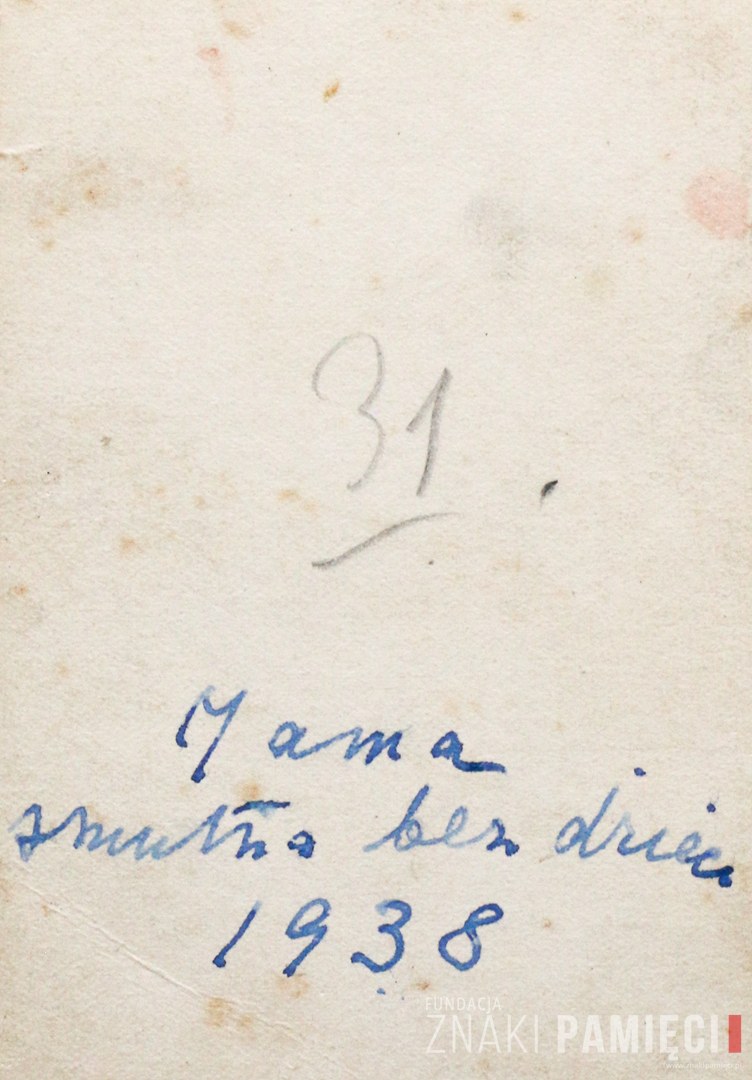 31
Mama
smutna bez dzieci
1938
FUNDACJA
ZNAKI PAMIĘCI